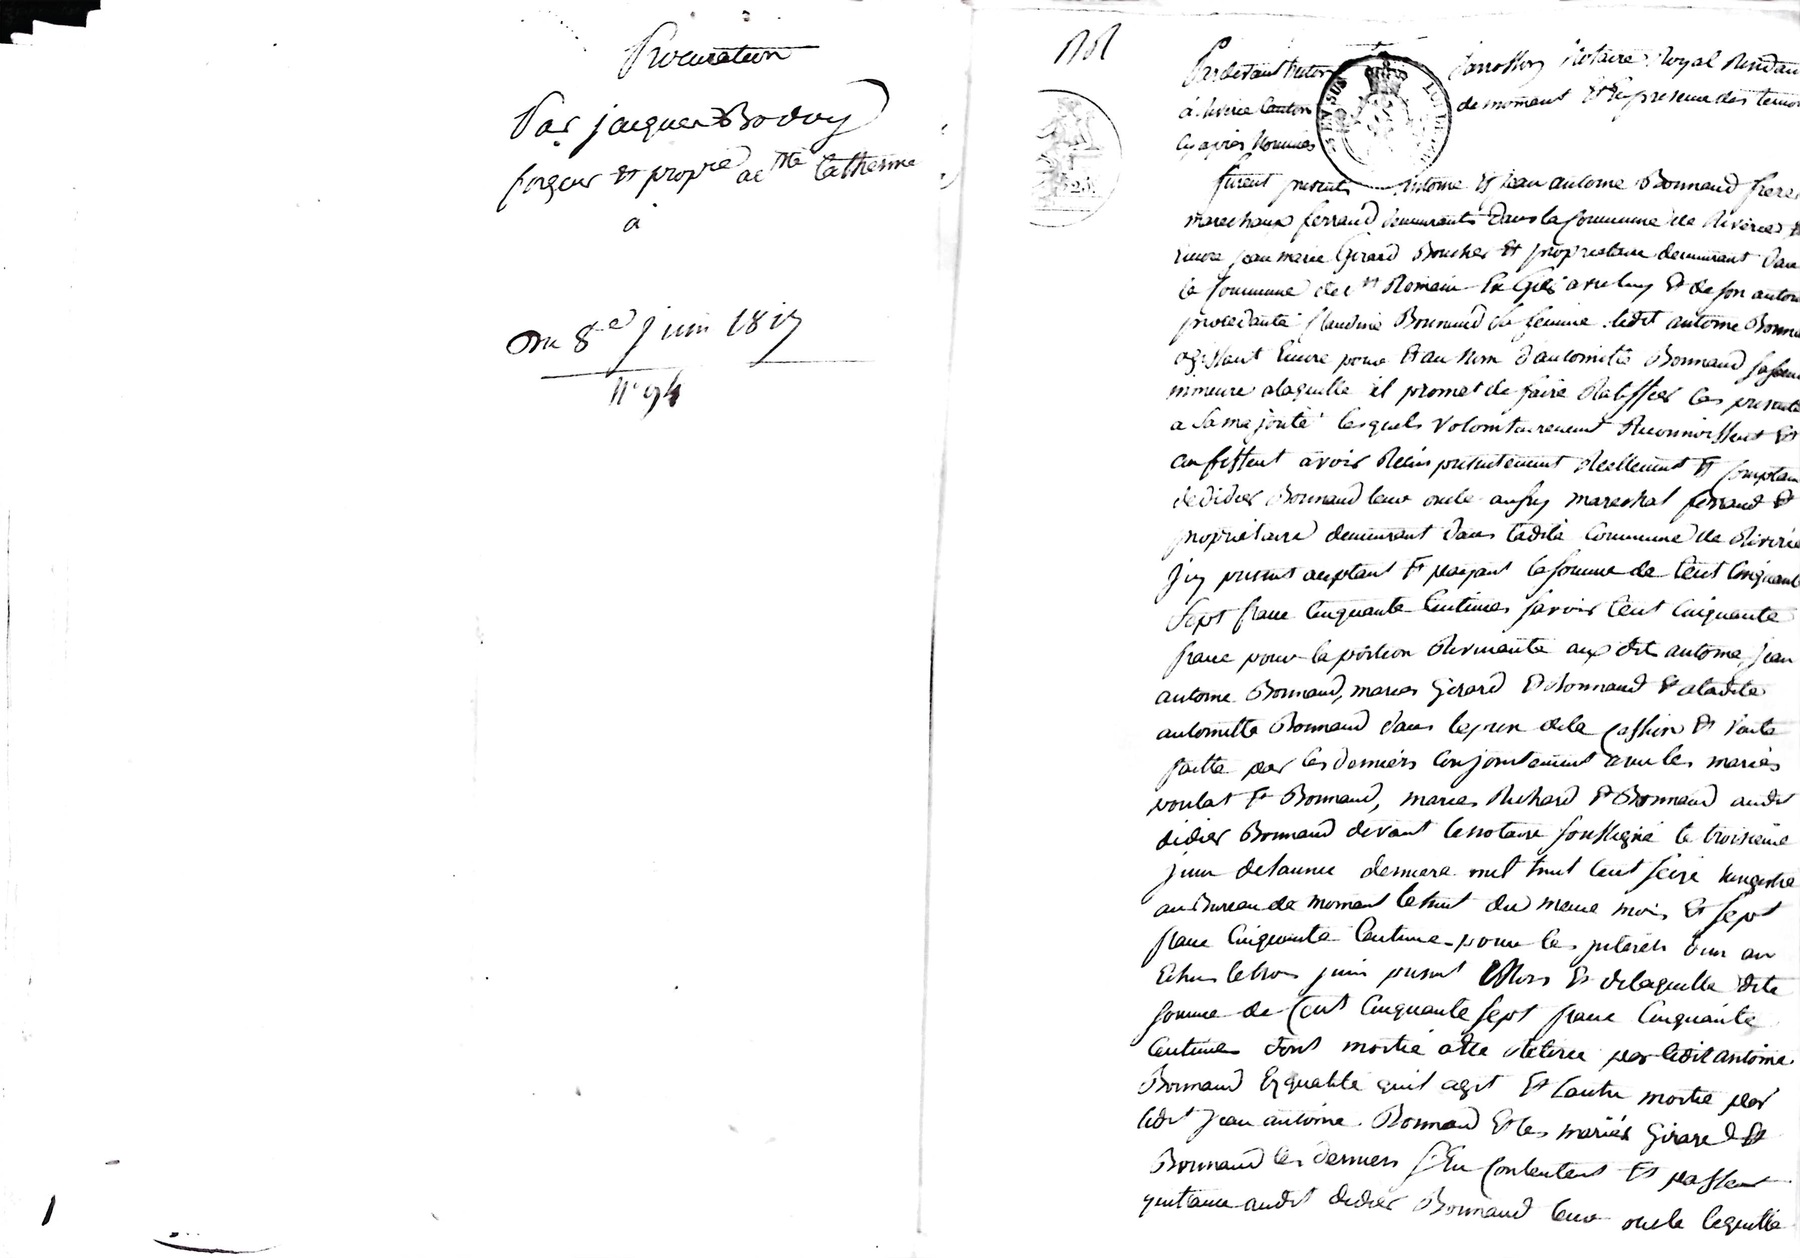 Procuration
Par jacques Bovoy
forgeur Et propre de Ste Catherine
à
Du 8e juin 1817
N° 94
Pardevant Notaire Royal
à Riverie Canton de mornant Et En presence des temoins
Cy apres Nommés
furent presents Antoine Et jean antoine Bonnand freres
marechaux ferrand demeurants dans la Commune de Riverie Et
jean marie Girard Boucher Et proprietaire demeurant dans
la Commune de st Romain En Gier avec luy Et de son autorité
procedante Claudine Bonnand sa femme ledit antoine Bonnand
agissant Encore pour Et au nom d'antoinette Bonnand sa soeur
mineure a laquelle il promet de faire Ratiffier les presentes
a sa majorité lesquels volontairement Reconnoissent Et
Confessent avoir Recus presentement Reellement Et Comptant
de didier Bonnand leur oncle aussy marechal ferrand Et
proprietaire demeurant dans ladite Commune de Riverie
Icy present acceptant Et payant la somme de Cent Cinquante
Sept franc Cinquante Centimes savoir Cent Cinquante
franc pour la portion Revenante aux dit antoine, jean
antoine Bonnand, maries Girard Et Bonnand Et a ladite
antoinette Bonnand dans le prix de la Cession Et vente
faitte par les derniers Conjointement avec les mariés
poulat Et Bonnand, maries Richard Et Bonnand audit
didier Bonnand devant le notaire soussigné le troisieme
juin de l'année derniere mil huit Cent seize
au Bureau de mornant le huit du meme mois Et sept
franc Cinquante Centime pour les interets d'un an
Echus le trois juin present mois Et de laquelle dite
somme de Cent Cinquante sept franc Cinquante
Centimes dont moitié a Eté Retirée par ledit antoine
Bonnand En qualité qu'il agit Et l'autre moitié par
ledit jean antoine Bonnand Et les mariés Girard Et
Bonnand les derniers s'En Contentent Et passent
quittance audit didier Bonnand leur oncle